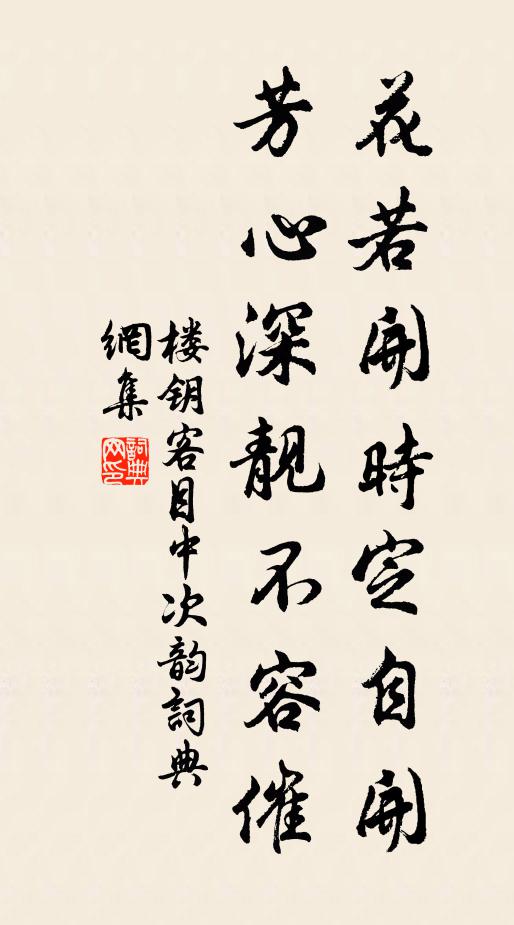 花若開時定自開
芳心深靚不容催
楼钥客目中次韵詞典
網集
詞典
网印